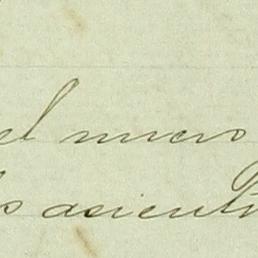 el nuevo
os asient